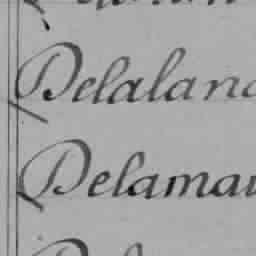 Delaland
Delamau